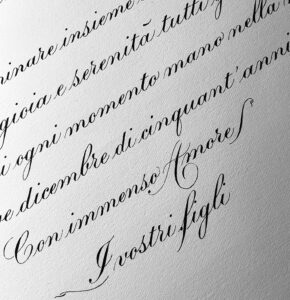 insieme
gioia e serenità tutti g
i ogni momento mano nella
e dicembre di cinquant'anni
Con immenso Amore
I vostri figli